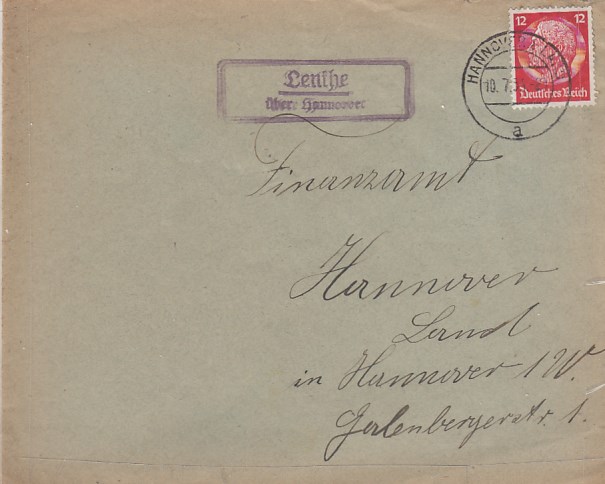 12 12
Deutsches Reich
HANNOVER
10.7.
a
Lenthe
über Hannover
Finanzamt
Hannover
Land
in Hannover 1 W.
Calenbergerstr. 1.